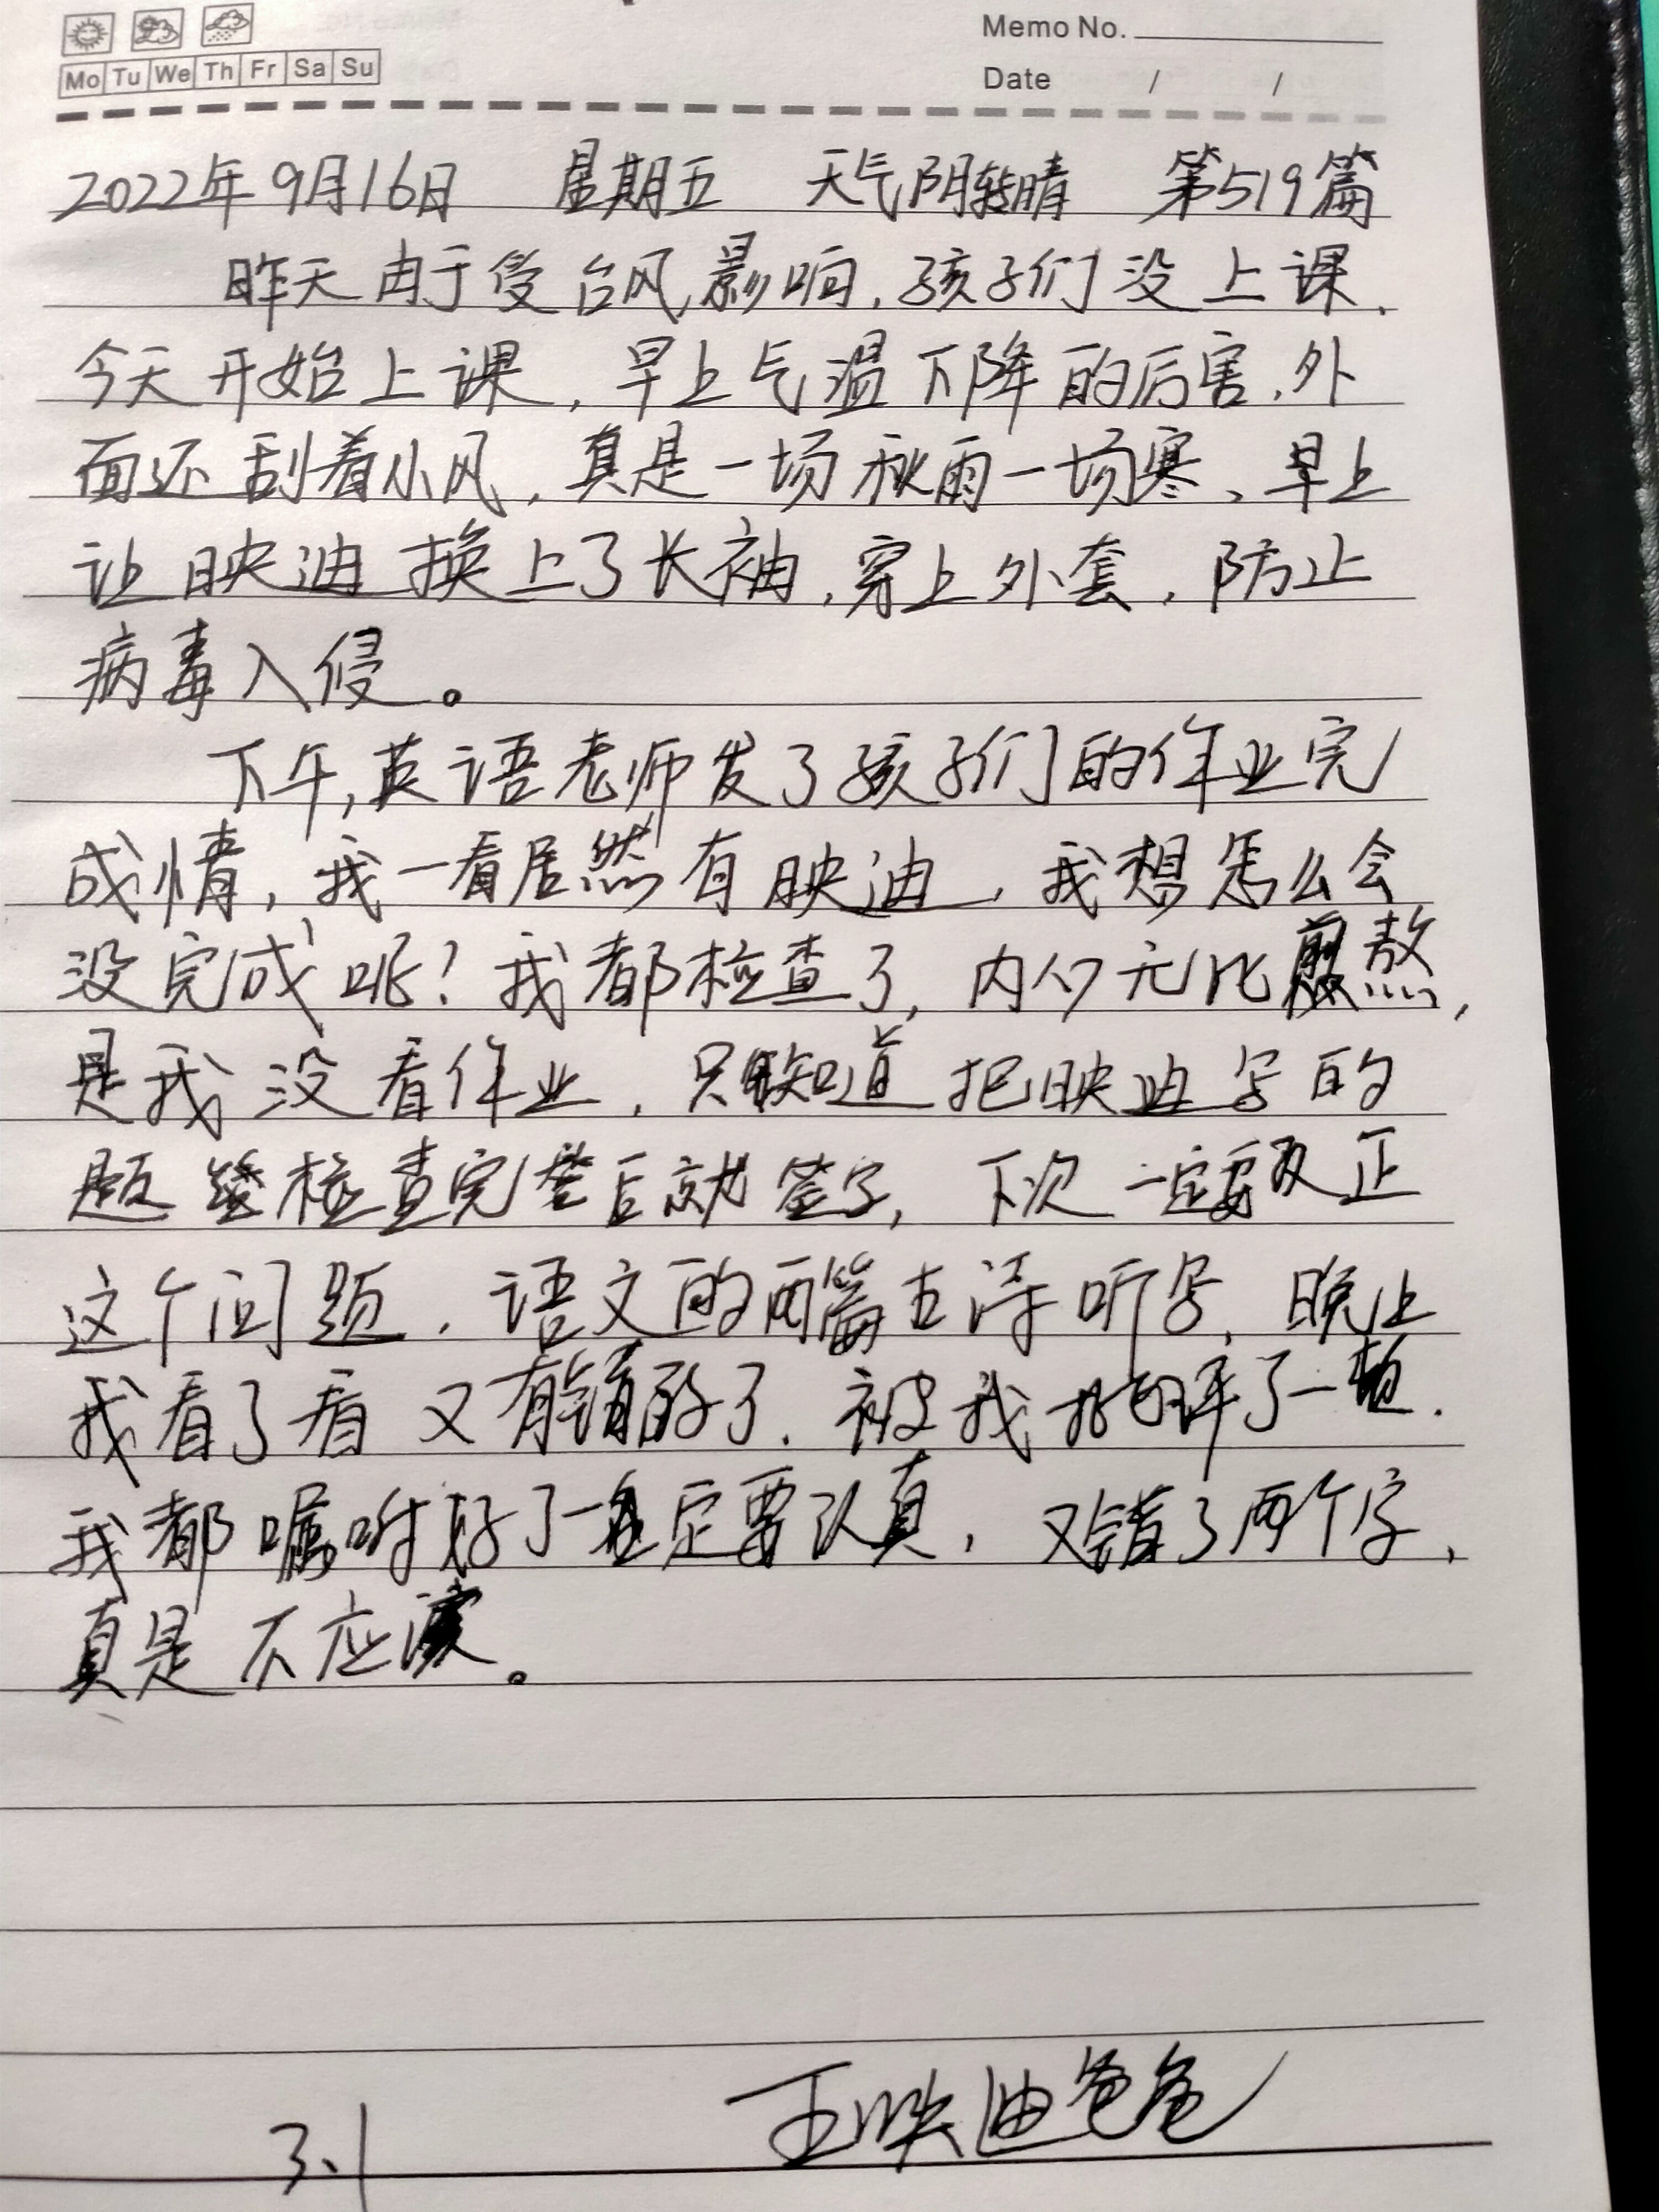 Mo Tu We Th Fr Sa Su
Memo No.
Date / /
2022年9月16日 星期五 天气阴转晴 第519篇
昨天由于受台风影响,孩子们没上课,
今天开始上课,早上气温下降的厉害,外
面还刮着小风,真是一场秋雨一场寒、早上
让映迪换上了长袖,穿上外套,防止
病毒入侵。
下午,英语老师发了孩子们的作业完
成情,我一看居然有映迪,我想怎么会
没完成呢?我都检查了,内心无比煎熬,
是我没看作业,只知道把映迪写的
题检查完毕后就签字,下次一定要改正
这个问题.语文的两篇古诗听写,晚上
我看了看又有错的了.被我批评了一顿.
我都嘱咐好了一定要认真,又错了两个字,
真是不应该。
3.1 王映迪爸爸